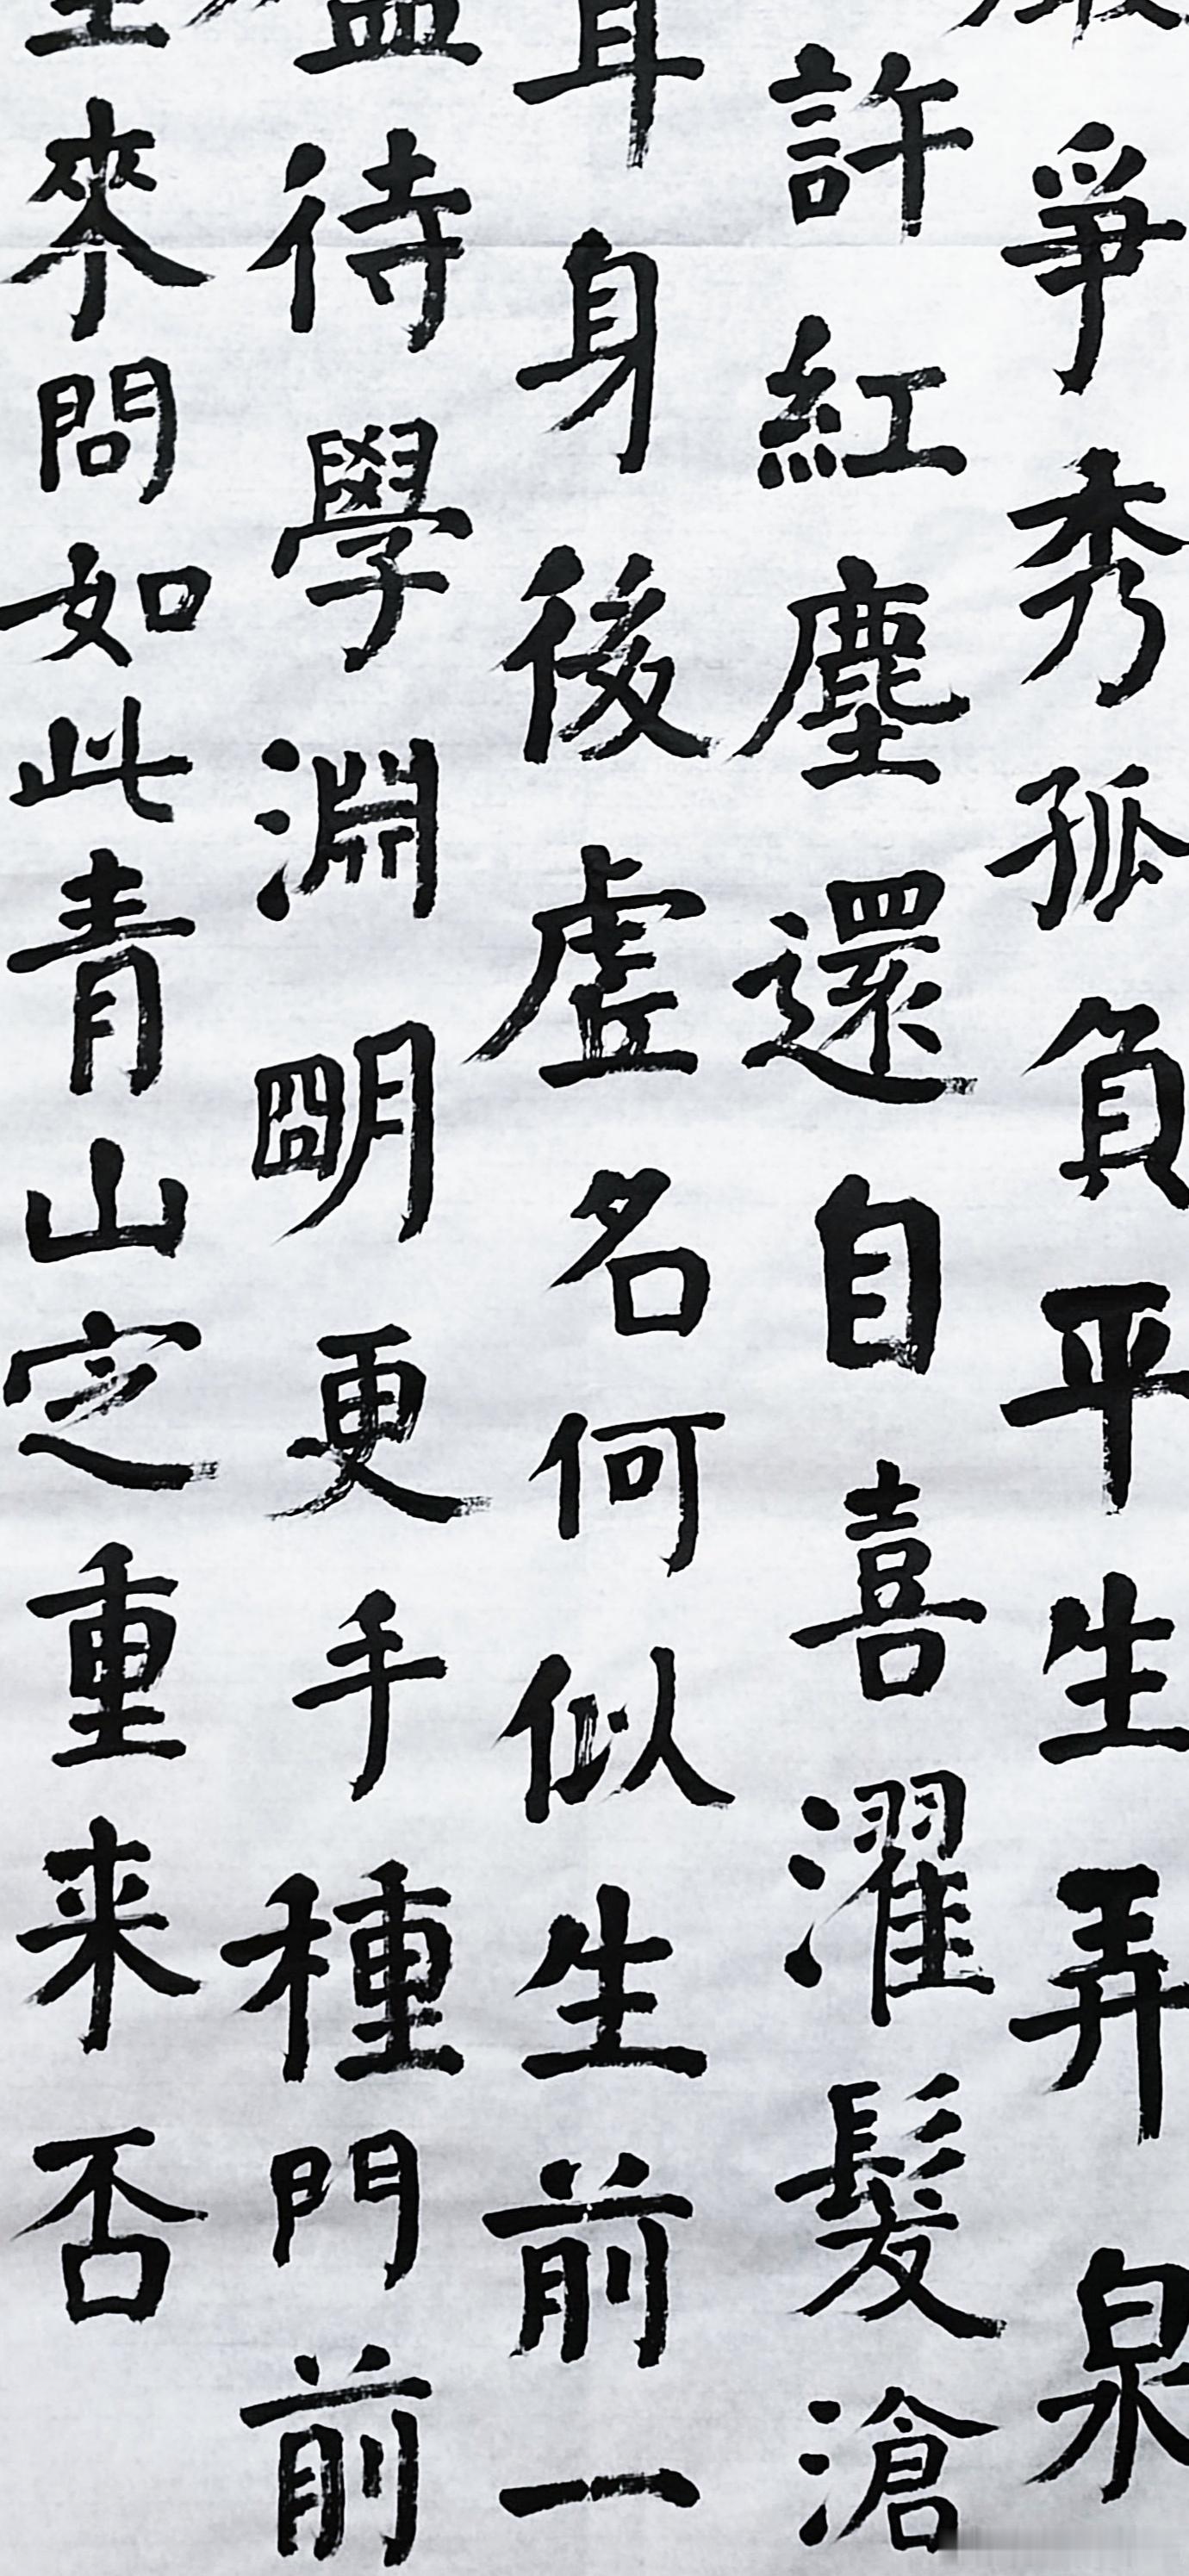 爭秀孤負平生弄泉
許紅塵還自喜濯髮滄
耳身後虛名何似生前一
盃待學淵明更手種門前
來問如此青山定重来否